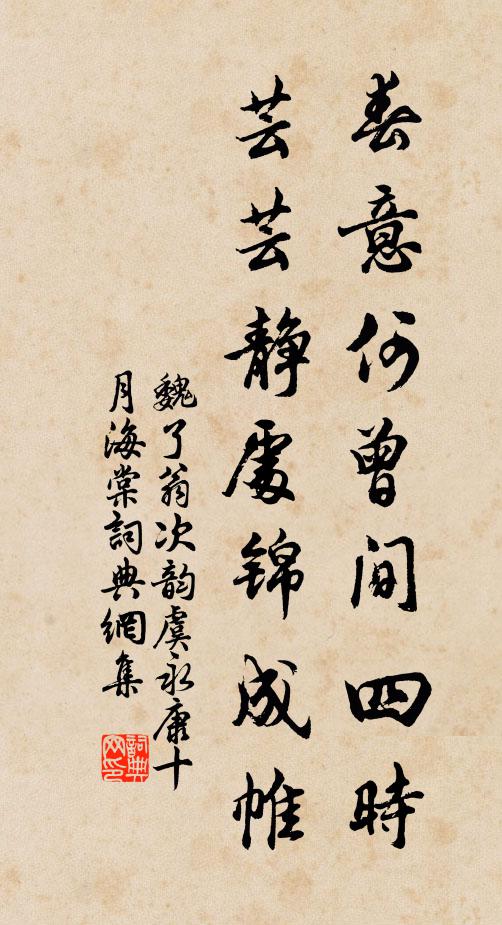 春意何曾间四時
芸芸靜處锦成帷
魏了翁次韵虞永康十
月海棠詞典網集
詞典
网印